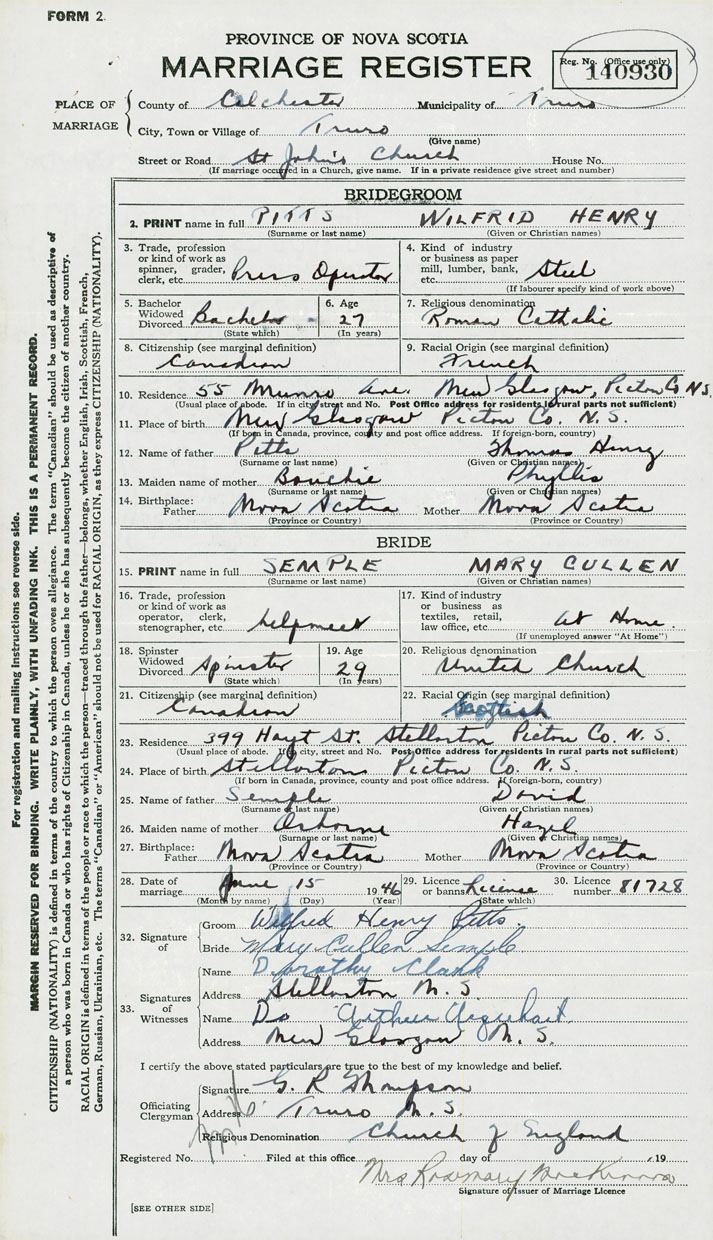 FORM 2.
PROVINCE OF NOVA SCOTIA
MARRIAGE REGISTER
Reg. No. (Office use only)
140930
PLACE OF MARRIAGE
County of Colchester Municipality of Truro
City, Town or Village of Truro
(Give name)
Street or Road St John's Church House No.
(If marriage occurred in a Church, give name. If in a private residence give street and number)
BRIDEGROOM
2. PRINT name in full PITTS WILFRID HENRY
(Surname or last name) (Given or Christian names)
3. Trade, profession or kind of work as spinner, grader, clerk, etc. Press Operator
4. Kind of industry or business as paper mill, lumber, bank, etc. Steel
(If labourer specify kind of work above)
5. Bachelor Widowed Divorced Bachelor
(State which)
6. Age 27
(In years)
7. Religious denomination
Roman Catholic
8. Citizenship (see marginal definition)
Canadian
9. Racial Origin (see marginal definition)
French
10. Residence 55 Munro Ave. New Glasgow, Pictou Co N.S.
(Usual place of abode. If in city, street and No. Post Office address for residents in rural parts not sufficient)
11. Place of birth New Glasgow Pictou Co. N.S.
(If born in Canada, province, county and post office address. If foreign-born, country)
12. Name of father Pitts Thomas Henry
(Surname or last name) (Given or Christian names)
13. Maiden name of mother Bouchie Phyllis
(Surname or last name) (Given or Christian names)
14. Birthplace: Father Nova Scotia Mother Nova Scotia
(Province or Country) (Province or Country)
BRIDE
15. PRINT name in full SEMPLE MARY CULLEN
(Surname or last name) (Given or Christian names)
16. Trade, profession or kind of work as operator, clerk, stenographer, etc. helpmeet
17. Kind of industry or business as textiles, retail, law office, etc. At Home.
(If unemployed answer "At Home")
18. Spinster Widowed Divorced Spinster
(State which)
19. Age 29
(In years)
20. Religious denomination
United Church
21. Citizenship (see marginal definition)
Canadian
22. Racial Origin (see marginal definition)
Scottish
23. Residence 399 Hayt St. Stellarton Pictou Co. N. S.
(Usual place of abode. If in city, street and No. Post Office address for residents in rural parts not sufficient)
24. Place of birth Stellarton Pictou Co. N.S.
(If born in Canada, province, county and post office address. If foreign-born, country)
25. Name of father Semple David
(Surname or last name) (Given or Christian names)
26. Maiden name of mother Osborne Hazel
(Surname or last name) (Given or Christian names)
27. Birthplace: Father Nova Scotia Mother Nova Scotia
(Province or Country) (Province or Country)
28. Date of marriage June 15 1946
(Month by name) (Day) (Year)
29. Licence or banns License
(State which)
30. Licence number 81728
32. Signature of
Groom Wilfred Henry Pitts
Bride Mary Cullen Semple
33. Signatures of Witnesses
Name Dorothy Clark
Address Stellarton N. S.
Name Do Arthur Urquhart
Address New Glasgow N. S.
I certify the above stated particulars are true to the best of my knowledge and belief.
Officiating Clergyman
Signature G. R Thompson
Address Truro N. S.
Religious Denomination Church of England
Registered No. Filed at this office day of , 19
Mrs Rosemary MacKinnon
Signature of Issuer of Marriage Licence
[SEE OTHER SIDE]
For registration and mailing instructions see reverse side.
MARGIN RESERVED FOR BINDING. WRITE PLAINLY, WITH UNFADING INK. THIS IS A PERMANENT RECORD.
CITIZENSHIP (NATIONALITY) is defined in terms of the country to which the person owes allegiance. The term "Canadian" should be used as descriptive of
a person who was born in Canada or who has rights of Citizenship in Canada, unless he or she has subsequently become the citizen of another country.
RACIAL ORIGIN is defined in terms of the people or race to which the person—traced through the father—belongs, whether English, Irish, Scottish, French,
German, Russian, Ukrainian, etc. The terms "Canadian" or "American" should not be used for RACIAL ORIGIN, as they express CITIZENSHIP (NATIONALITY).